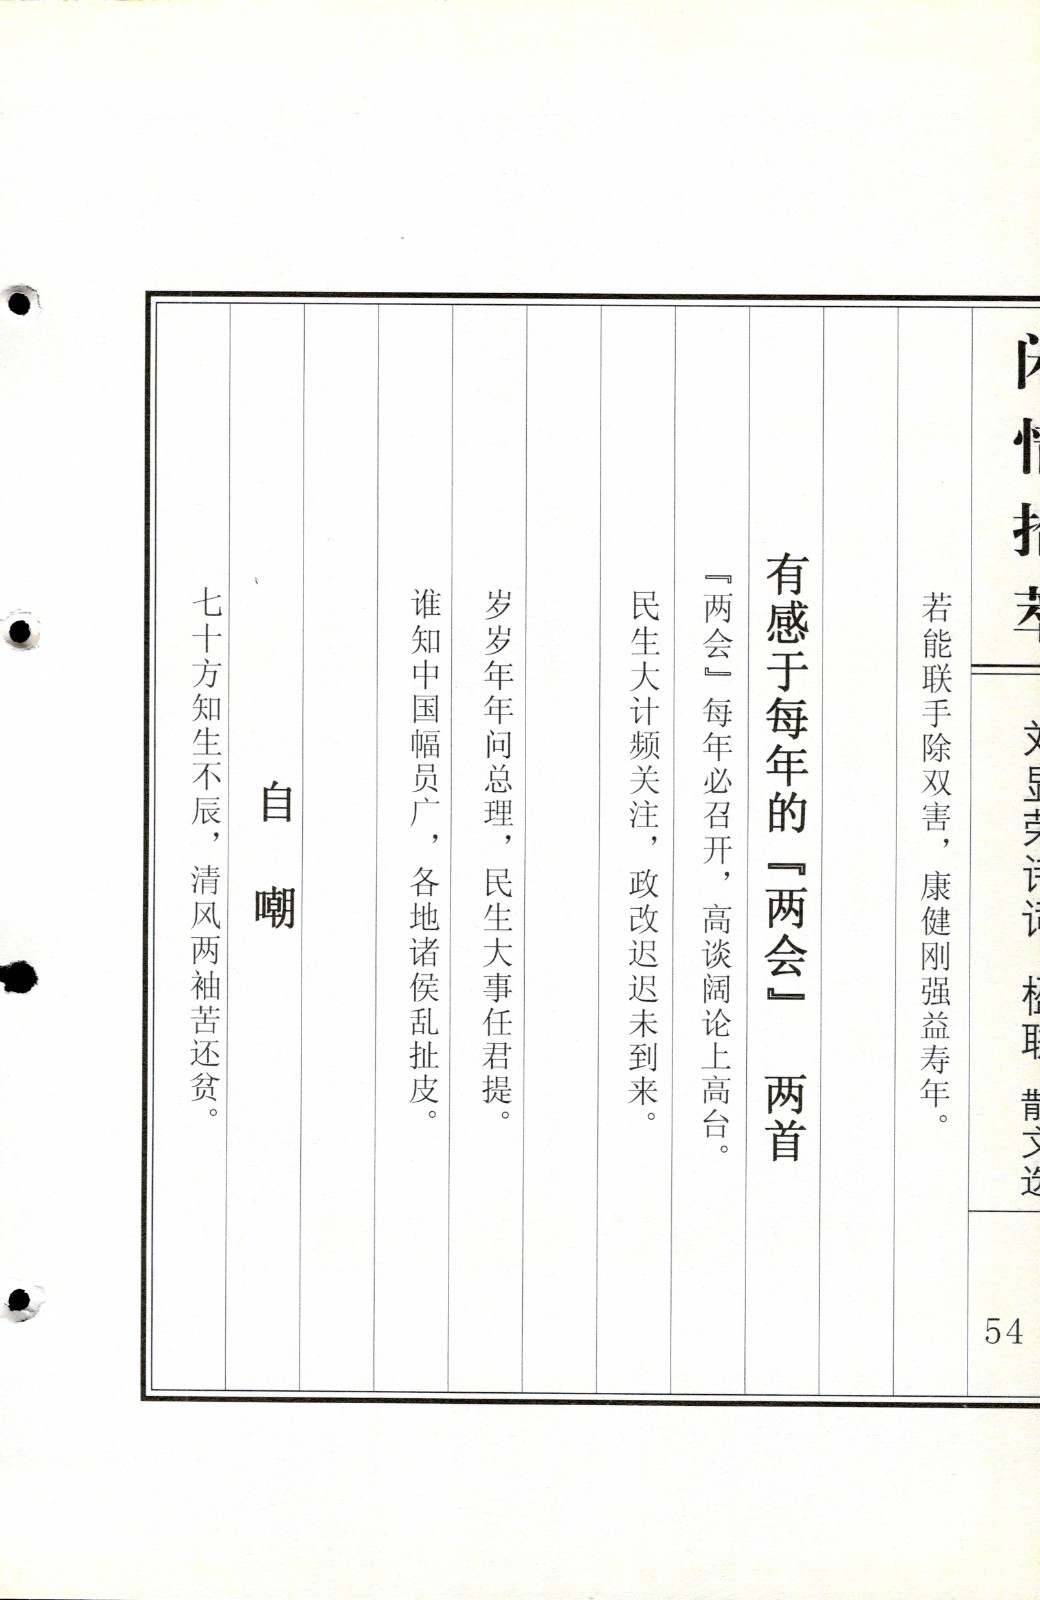 闲情拾萃
刘显荣诗词 楹联 散文选
54
若能联手除双害，康健刚强益寿年。
有感于每年的『两会』 两首
『两会』每年必召开，高谈阔论上高台。
民生大计频关注，政改迟迟未到来。
岁岁年年问总理，民生大事任君提。
谁知中国幅员广，各地诸侯乱扯皮。
自 嘲
七十方知生不辰，清风两袖苦还贫。